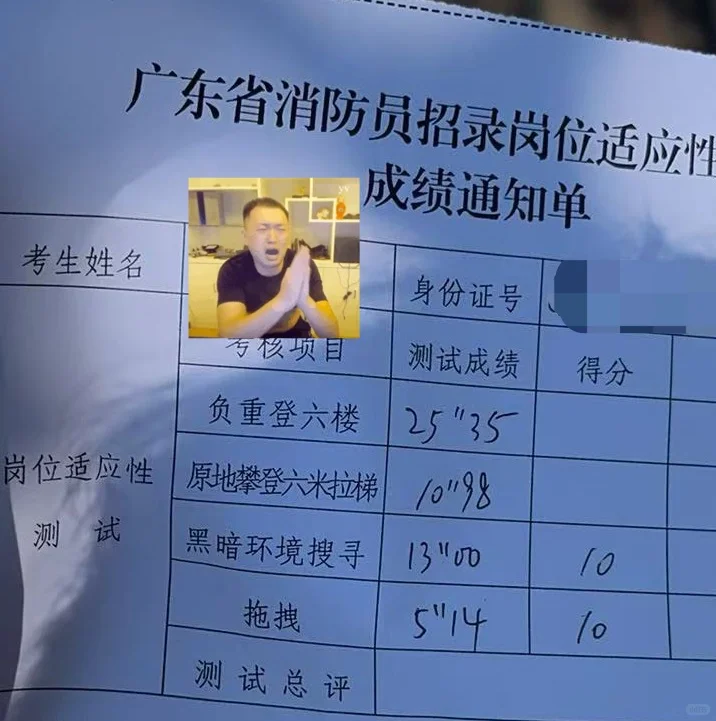 广东省消防员招录岗位适应性
成绩通知单
考生姓名 身份证号
考核项目 测试成绩 得分
负重登六楼 25"35
岗位适应性
测试
原地攀登六米拉梯 10"98
黑暗环境搜寻 13"00 10
拖拽 5"14 10
测试总评